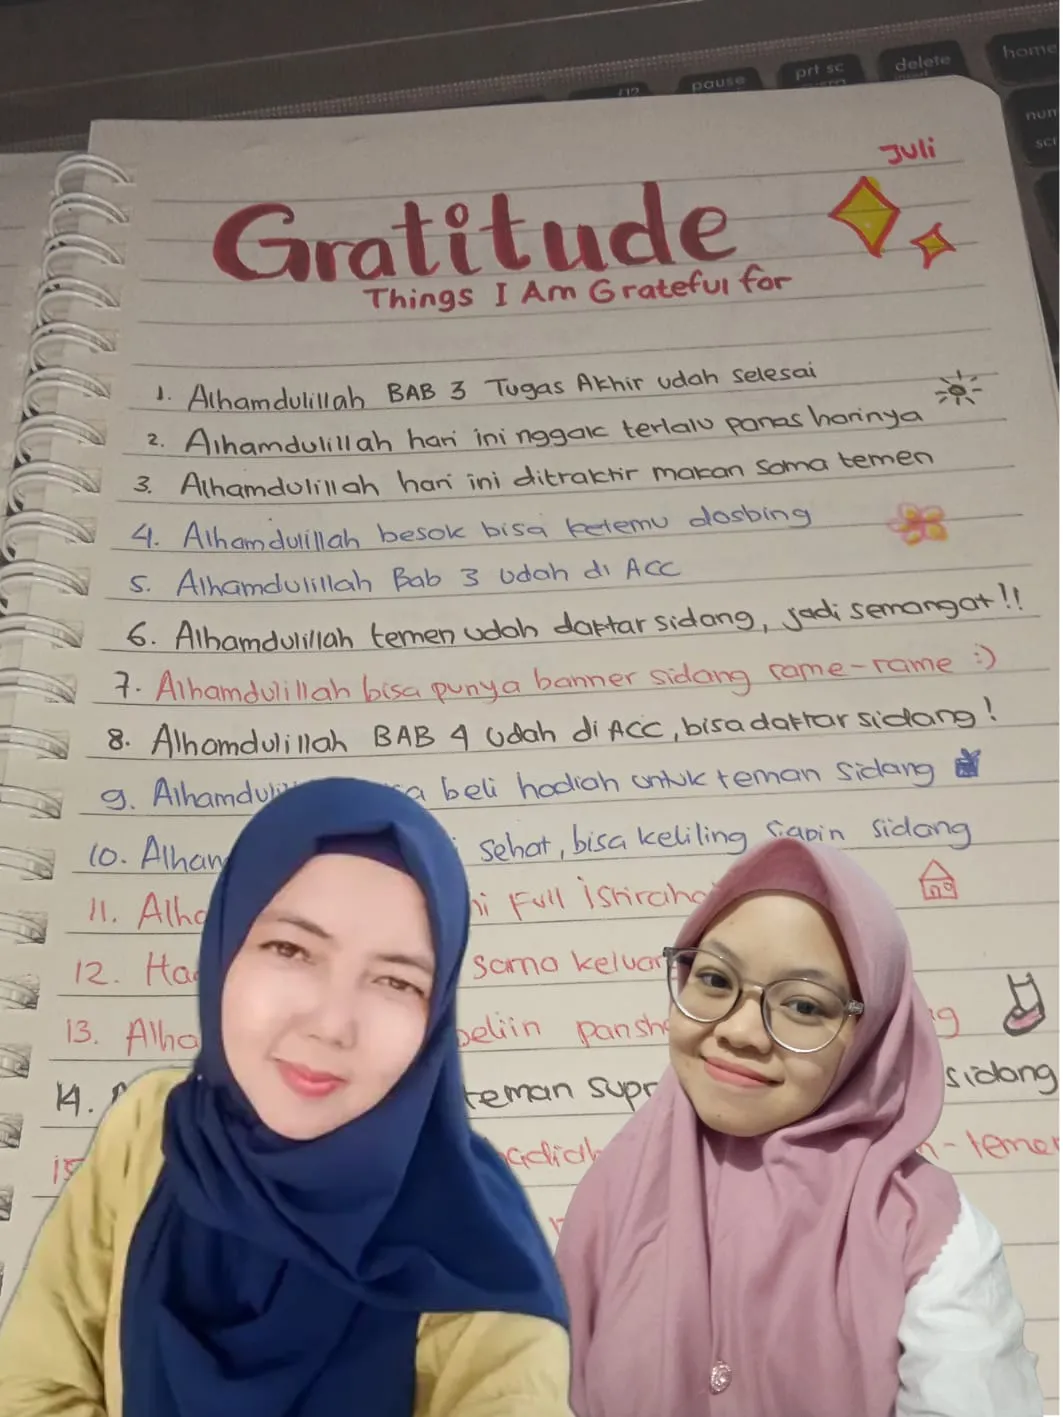 pause
prt sc
delete
home
Juli
Gratitude
Things I Am Grateful for
1. Alhamdulillah BAB 3 Tugas Akhir udah selesai
2. Alhamdulillah hari ini nggak terlalu panas harinya
3. Alhamdulillah hari ini ditraktir makan sama temen
4. Alhamdulillah besok bisa ketemu dosbing
5. Alhamdulillah Bab 3 udah di ACC
6. Alhamdulillah temen udah daftar sidang, jadi semangat!!
7. Alhamdulillah bisa punya banner sidang rame-rame :)
8. Alhamdulillah BAB 4 udah di ACC, bisa daftar sidang!
9. beli hadiah untuk teman sidang
10. sehat, bisa keliling siapin sidang
11. Full
12. sama
13. beliin
14. teman sidang